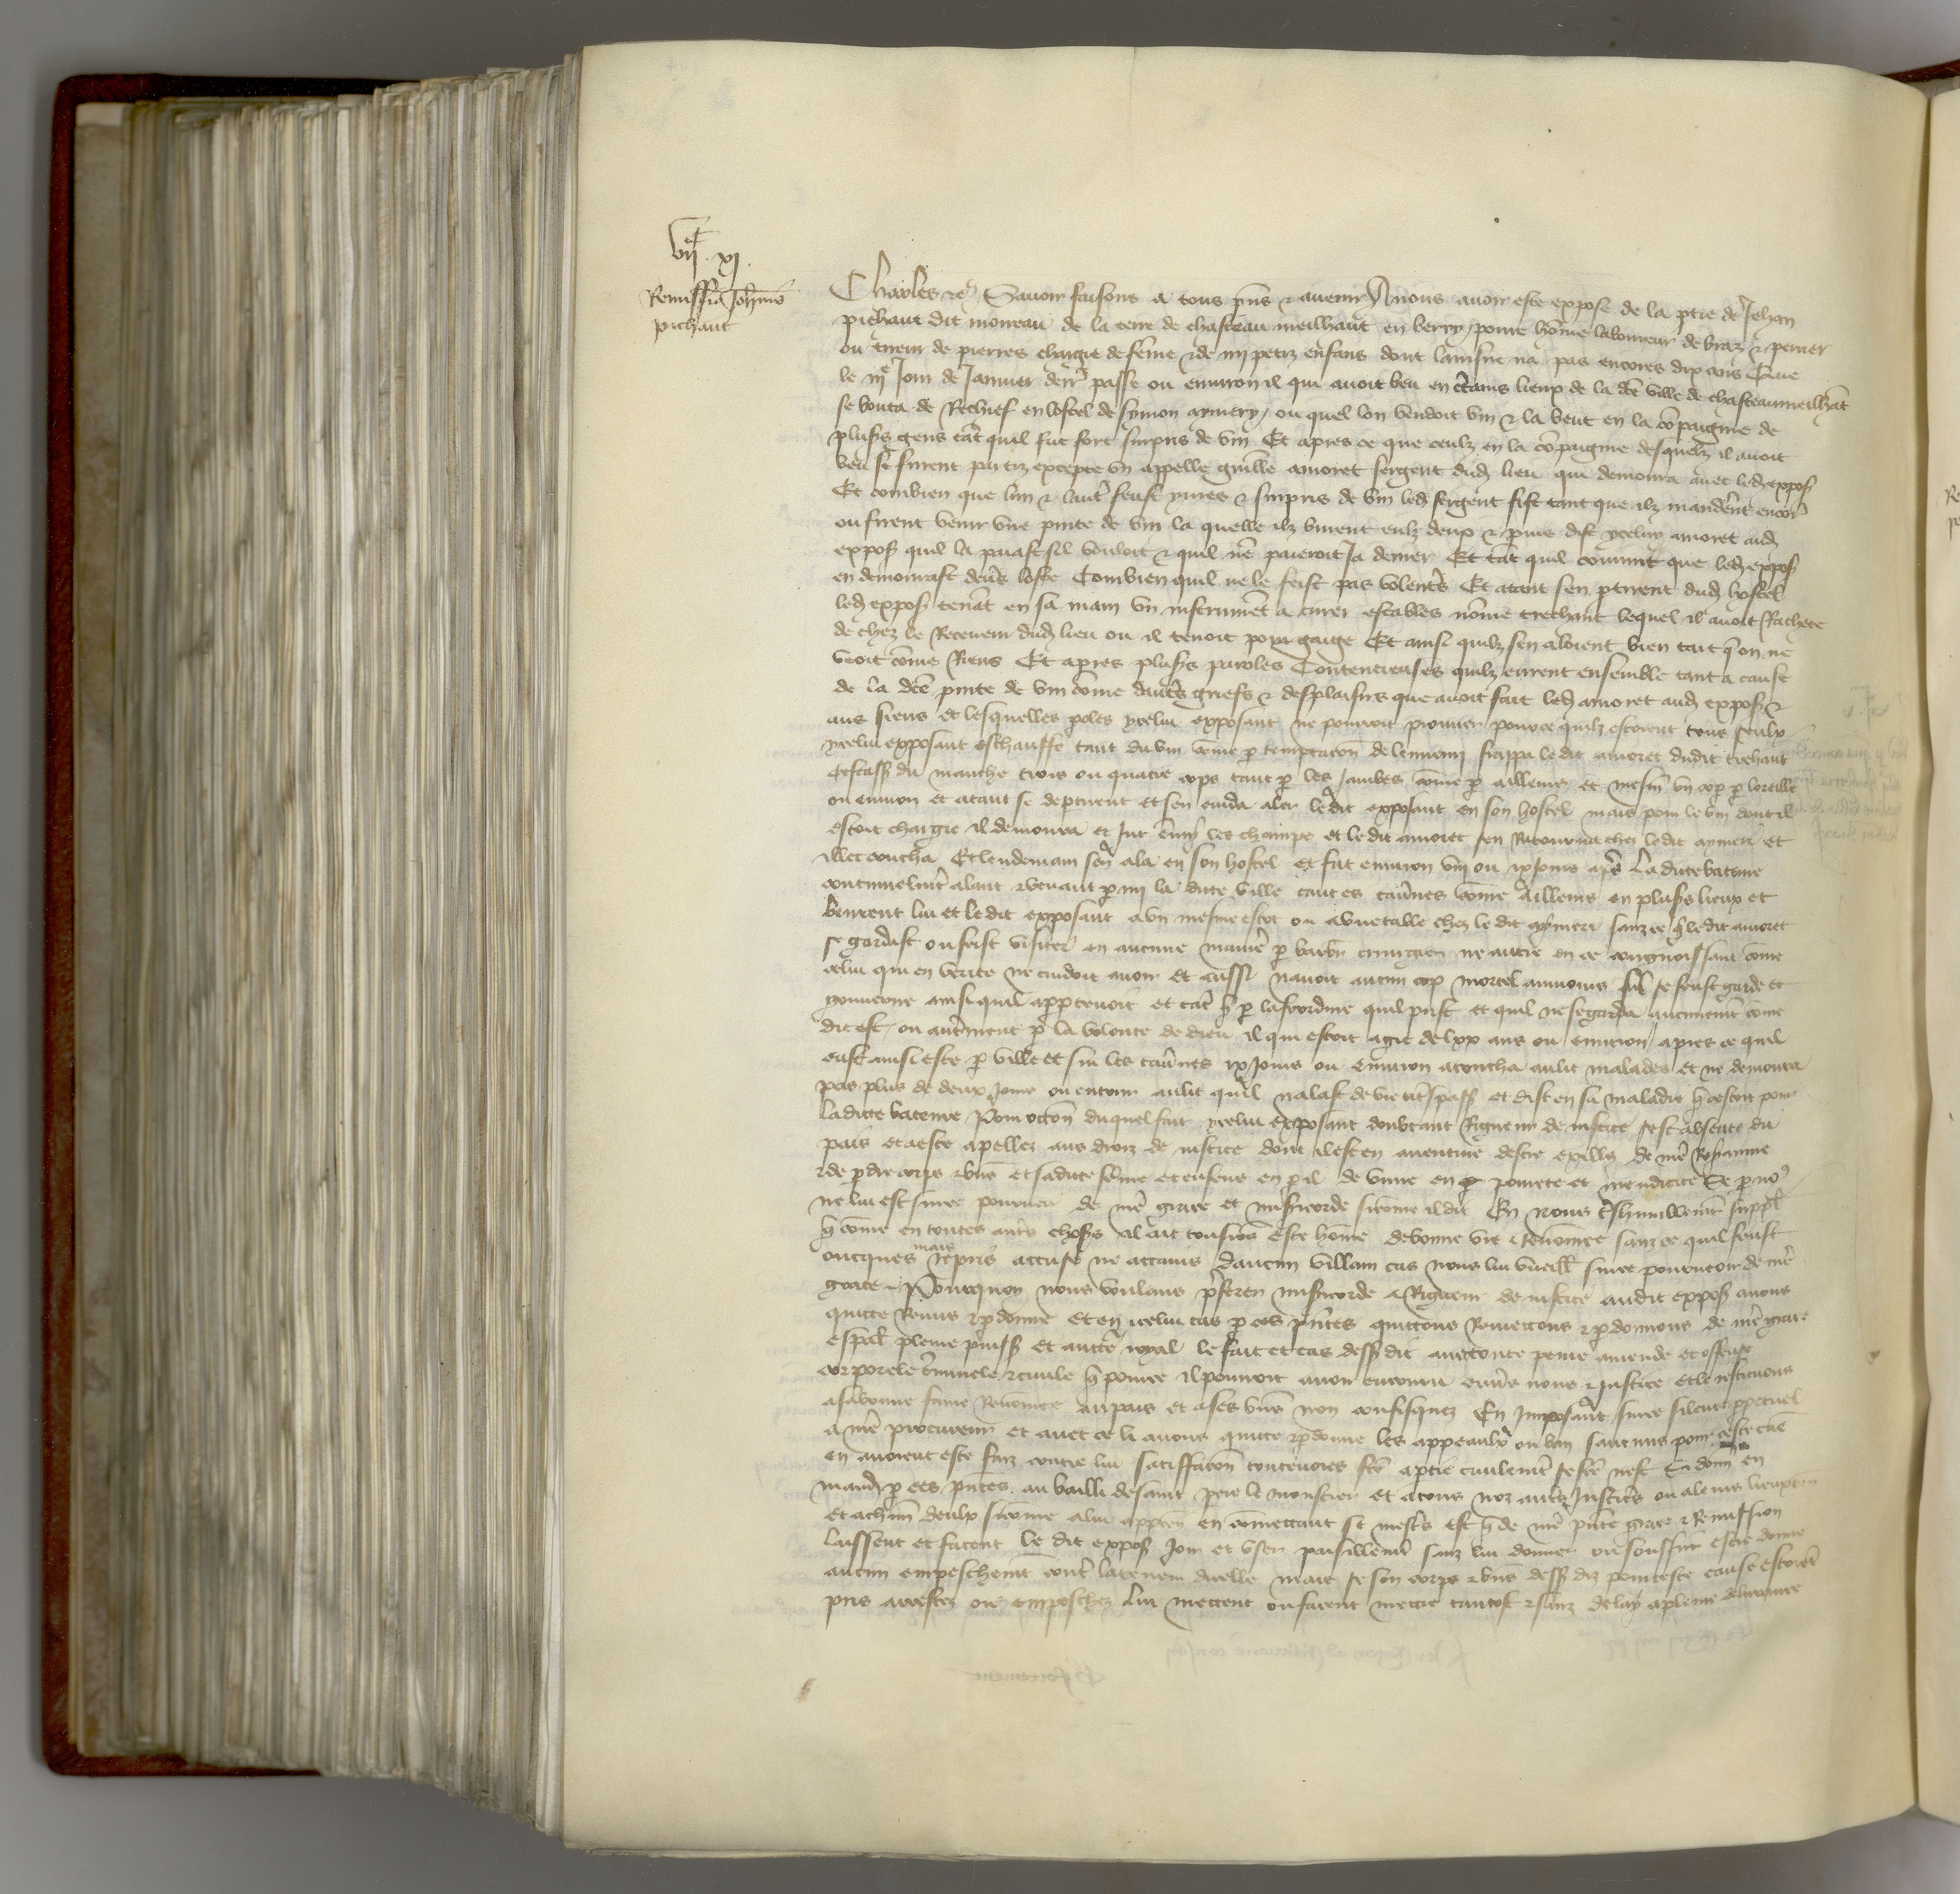 vijc xj
Remissio Johanne
pichaut
Charles &c Savoir faisons a tous pns & avenir A nous avoir este expose de la ptie de Jehan
pichaut dit moreau de la terre de chasteau meilhant en berry povre home laboureur de braz & perrier
ou tireur de pierres chargie de feme & de iiij petiz enfans dont lainsne na pas encores dix ans Que
le iije Jour de Janvier derr passe ou environ il qui avoit beu en ctains lieux de la dce ville de chasteaumeilhat
se bouta de Rechief en lostel de symon aymery / ou quel lon vendoit vin & la beut en la copaignie de
plusrs gens tat quil fut fort surpris de vin Et apres ce que ceulz en la copaignie desquelz il avoit
beu se furent partiz excepte un appelle guille amoret sergent dud lieu qui demoura avec led expos
Et combien que lun & lautr feust yvres & surpris de vin led sergent fist tant que ilz manderent encor
ou firent venir une pinte de vin la quelle ilz burent eulz deux & puis dist ycelui amoret aud
expos quil la paiast sil vouloit & quil nen paieroit Ja denier Et tat quil convint que led expos
en demourast devs loste Combien quil ne le feist pas volentrs Et atant sen ptirent dud hostel
led expos tenat en sa main un instrumet a curer estables nome trechant lequel il avoit Rachete
de chez le Receveur dud lieu ou il tenoit pour gaige Et ainsi quilz sen aloient bien tart q on ne
veoit come Riens Et apres plusrs paroles Contencieuses quilz eurent ensemble tant a cause
de la dce pinte de vin come dautrs griefs & desplaisirs que avoit fait led amoret aud expos &
aus siens et lesquelles poles ycelui exposant ne pourroit prouver pource quilz estoient tous seulx
ycelui exposant eschauffe tant du vin come p temptacion de lennemi frappa le dit amoret dudit trehant
Cestass du manche trois ou quatre cops tant p les Jambes come p ailleurs et mesm un cop p loreille
ou environ et atant se deptirent et sen cuida aler le dit exposant en son hostel mais pour le vin dont il
estoit chargie il demoura et Jut emy les champs et le dit amoret sen Retourna chez ledit aymeri et
illec coucha Et lendemain sen ala en son hostel et fut environ viij ou ix Jours aps La dicte bateure
continuelmt alant & venant p mi la dicte ville tant es tavernes come ailleurs en plusrs lieux et
beurent lui et ledit exposant a un mesme escot ou a une table chez le dit aymeri sanz ce q ledit amoret
se gardast ou feist visiter en aucune manie p barbr cirurgien ne autre en ce congnoissant come
celui qui en verite ne cuidoit avoir et aussi navoit aucun cop mortel au moins sil se feust garde et
gouverne ainsi quil appartenoit et tat q p la froidure quil prist et quil ne se garda aucunemt come
dit est / ou autrement p la volente de dieu il qui estoit agie de lxx ans ou environ apres ce quil
eust ainsi este p ville et sur les tavernes ix Jours ou environ acoucha au lit malades et ne demoura
pas plus de deux Jours ou entour au lit quil nalast de vie a trespass et dist en sa maladie q cestoit pour
ladicte bateure Pour occon duquel fait ycelui exposant doubtant Rigueur de justice sest absente du
pais et a este apellez aus droiz de justice dont il est en aventure destre exillie de nre Royaume
& de pdre corps & biens et sadicte feme et enfens en pil de vivre en povrete et mendicite Se p nous
ne lui est sure pourveu de nre grace et misericorde sicome il dit En nous treshumblemt suppl
q come en toutes autrs choses il ait tousjors este home de bonne vie & Renomee sanz ce quil feust
oncques mais repris accuse ne attains daucun villain cas nous lui vueill sure pourveoir de nre
grace Pourquoy nous voulans prferer misericorde a Rigueur de justice audit expos avons
quitte Remis & pdonne et en icelui cas p ces pntes quittons Remettons & pdonnons de nre grace
especial pleine puiss et auctte royal le fait et cas dess dit avec toute peine amende et offense
corporele criminele & civile q pource il pourroit avoir encouru envers nous & justice et le restituons
a sa bonne fame Renomee au pais et a ses biens non confisquez En Imposant sure silence ppetuel
a nre procureur et avec ce li avons quitte & pdonne les appeaulx ou ban saucuns pour ceste cause
en avoient este faiz contre lui satisffacon toutevoies fce a ptie civilemt se fce nest Si donn en
mand p ces pntes au bailli de saint pere le monstier et a tous noz autrs Justiciers ou a leurs lieuxten
et a chm deulx sicome a lui apptendra en comettant se mestrs est q de nre pnte grace & Remission
laissent et facent le dit expos Joir et user paisiblemt sanz lui donner ou souffrir estre donne
aucun empeschemt contre la teneur dicelle mais se son corps & biens dess diz pour ceste cause estoiet
pris arrestez ou empeschez lui mettent ou facent mettre tantost & sanz delay a pleine delivrance